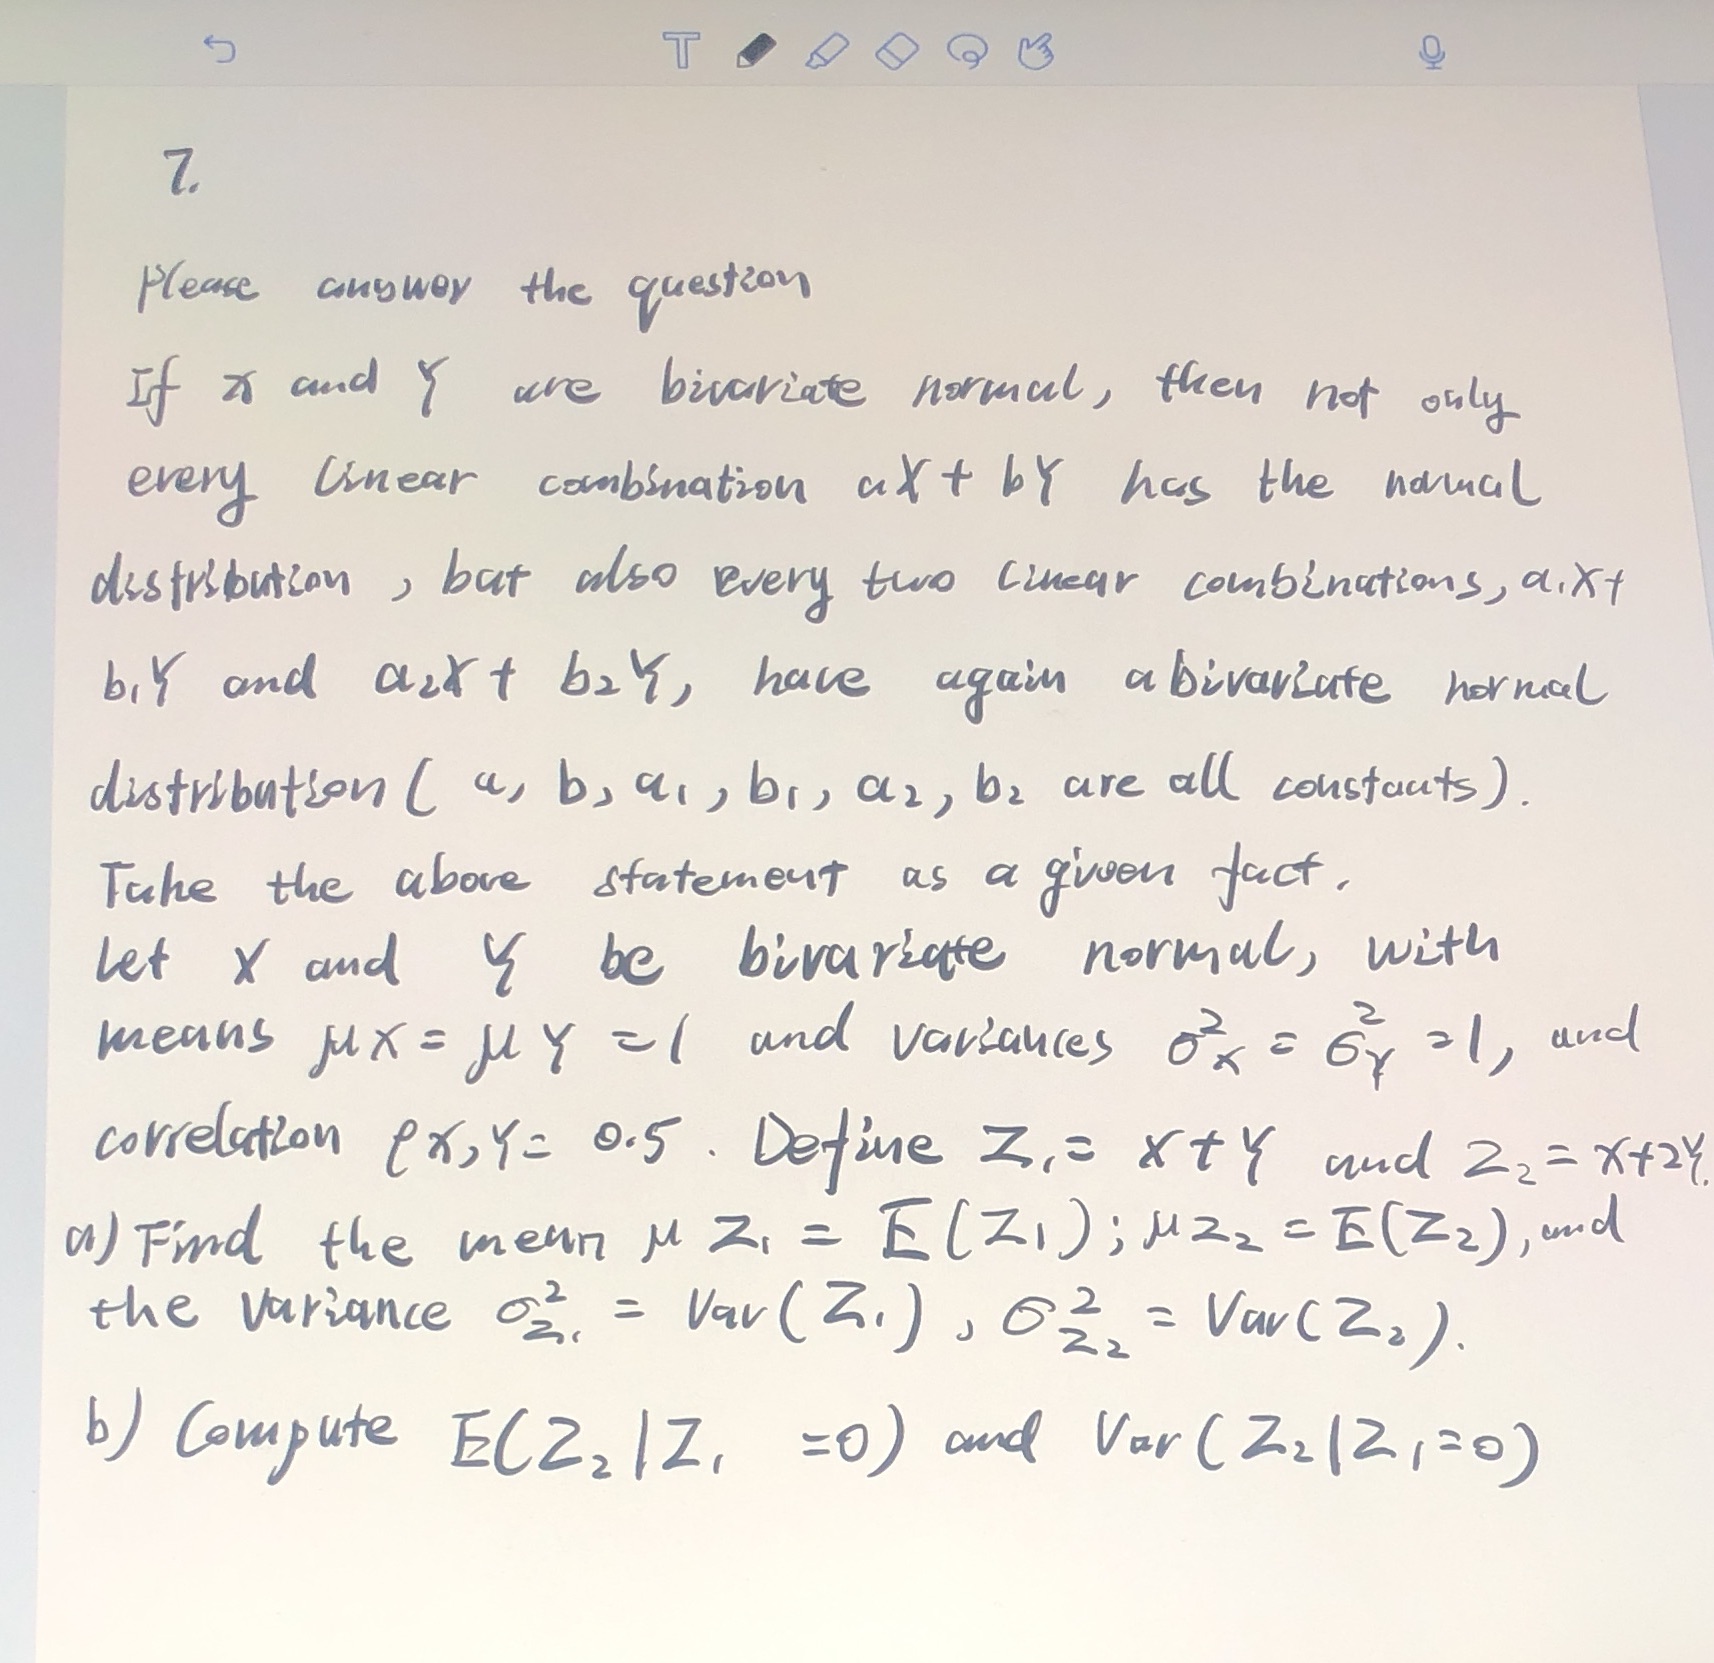 7.
Please answer the question
If X and Y are bivariate normal, then not only
every linear combination aX + bY has the normal
distribution, but also every two linear combinations, a₁X+
b₁Y and a₂X + b₂Y, have again a bivariate normal
distribution ( a, b, a₁, b₁, a₂, b₂ are all constants).
Take the above statement as a given fact.
Let X and Y be bivariate normal, with
means μX = μY = 1 and variances σ²ₓ = σ²Y = 1, and
correlation ρX,Y = 0.5. Define Z₁ = X+Y and Z₂ = X+2Y.
a) Find the mean μZ₁ = E(Z₁); μZ₂ = E(Z₂), and
the variance σ²Z₁ = Var(Z₁), σ²Z₂ = Var(Z₂).
b) Compute E(Z₂|Z₁ =0) and Var(Z₂|Z₁=0)